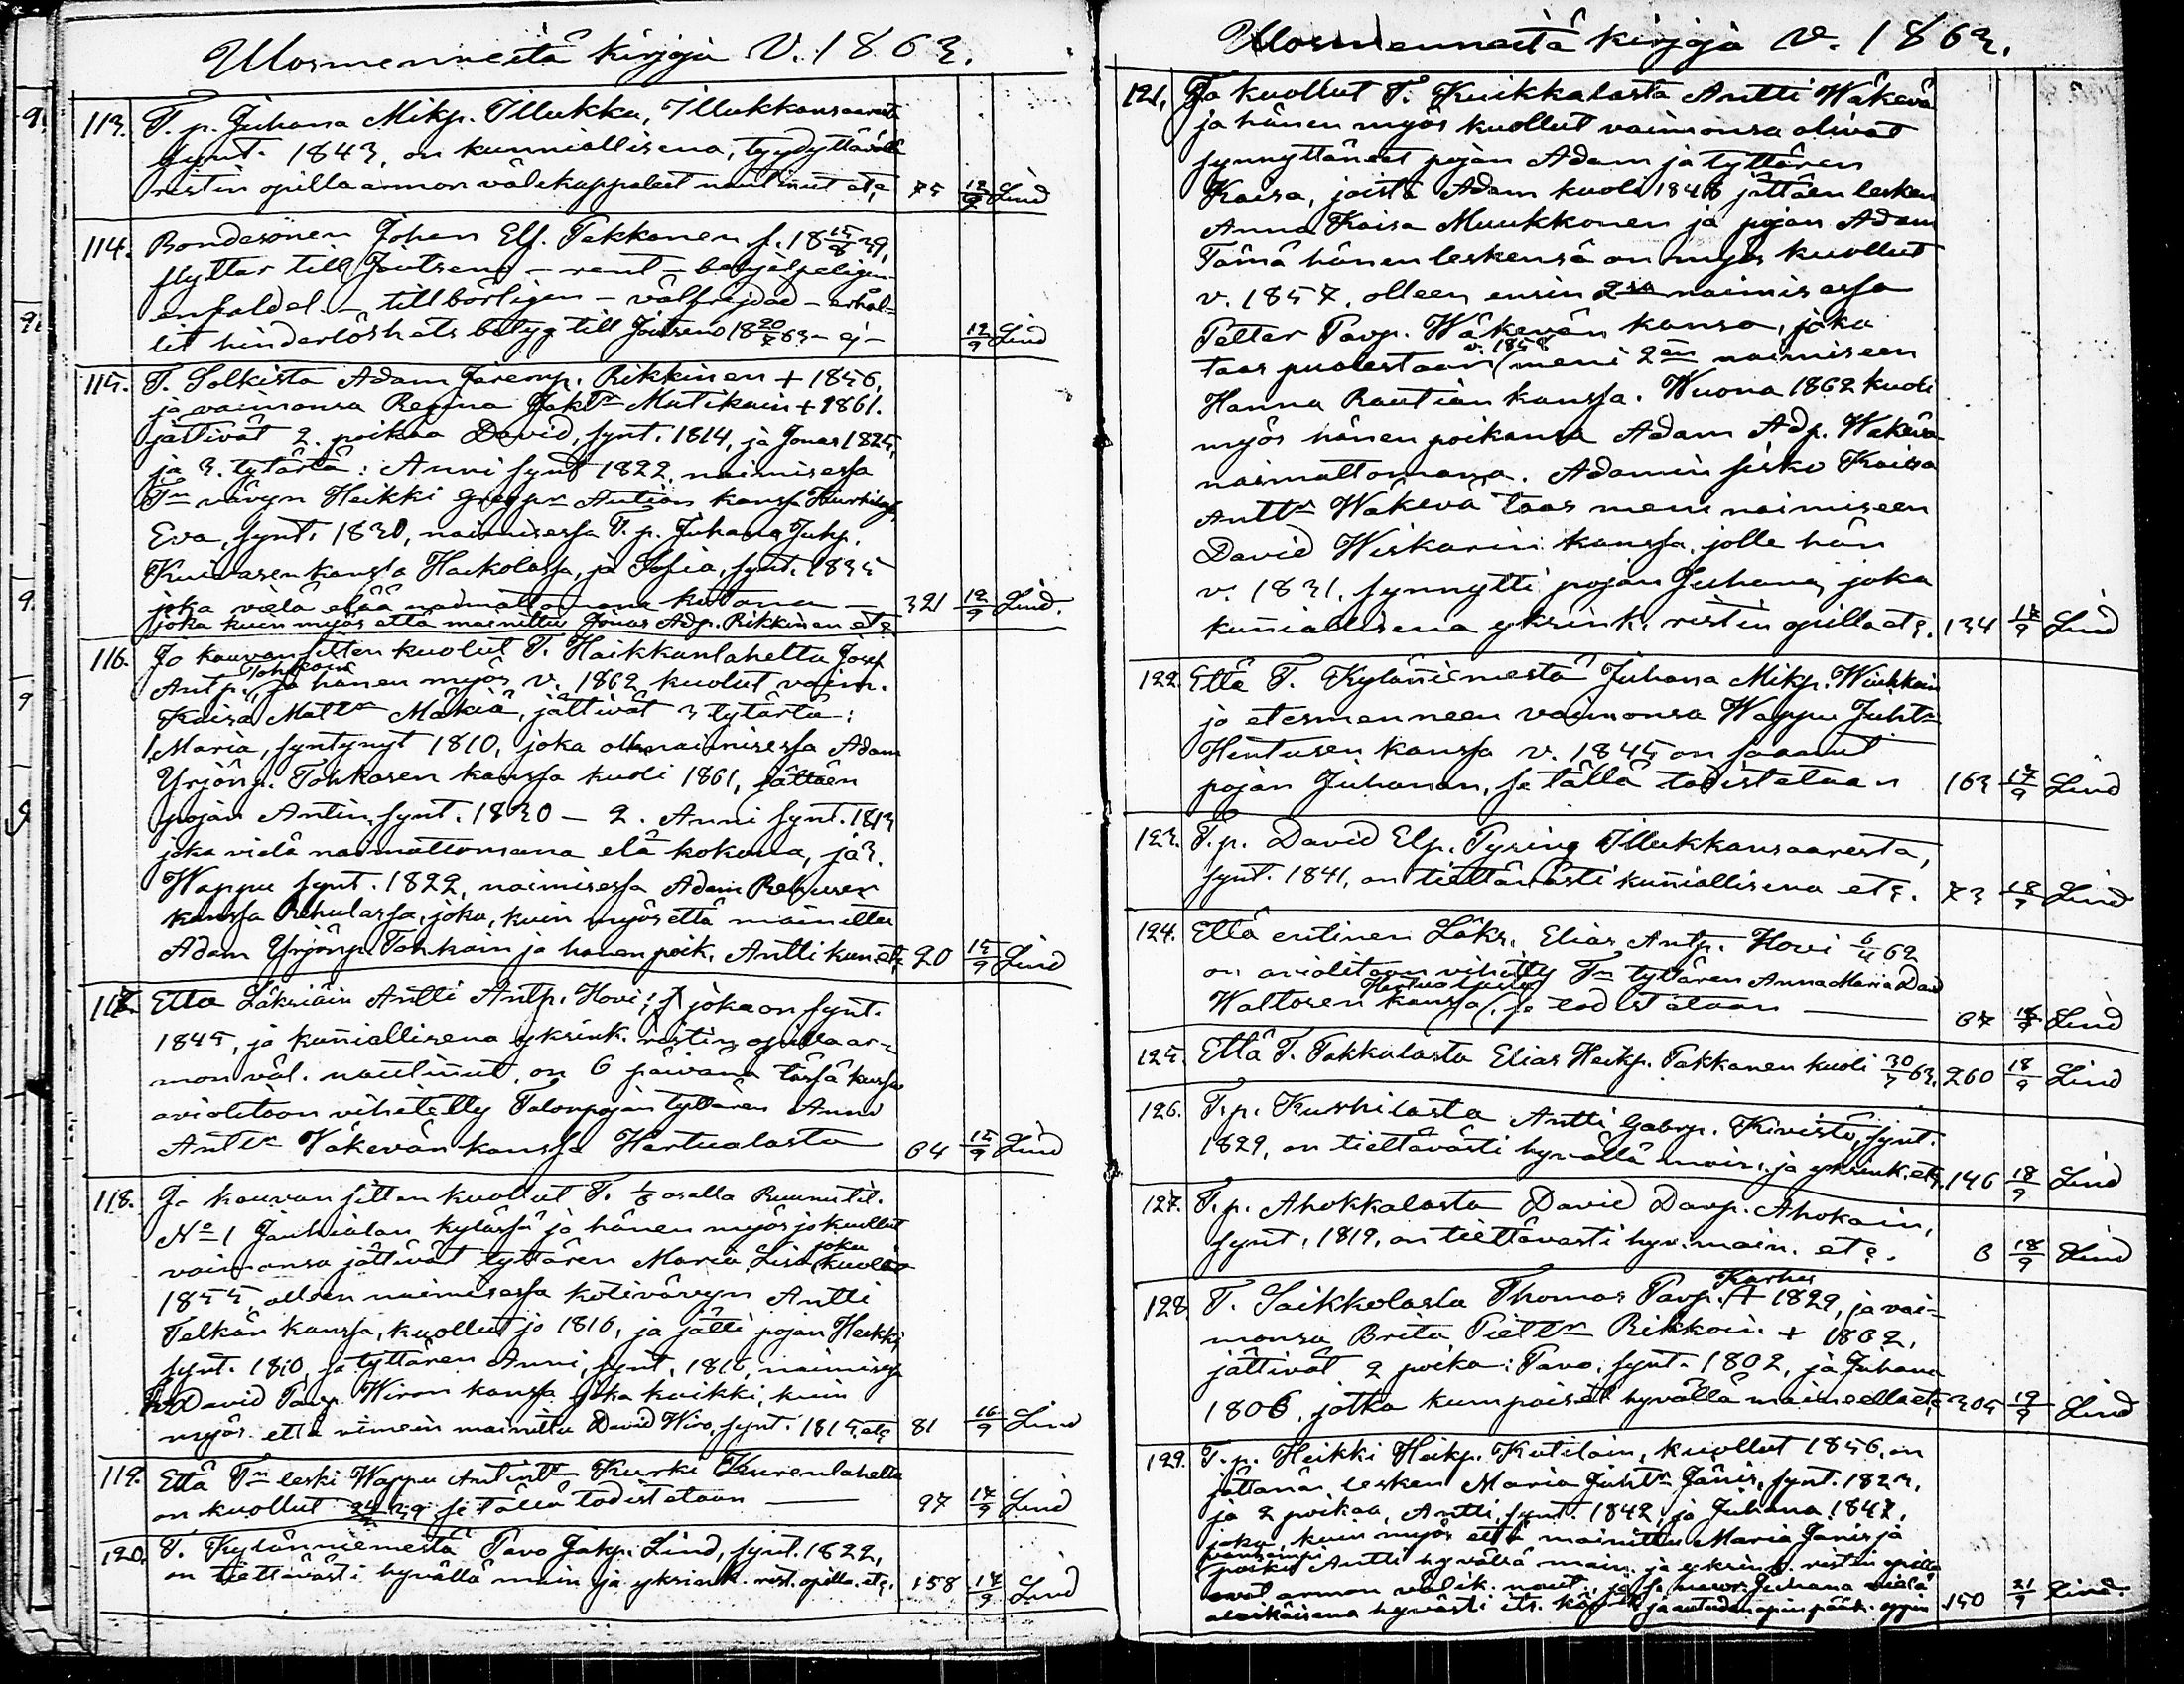 Ulosmenneitä kirjoja V. 1863.
113. T. p. Juhana Mikp. Illukka, Illukkansaaresta
synt. 1843, on kunniallisena, tyydyttävällä
ristin opilla armon välikappaleet nautinut etc 75 12/9 Lind
114. Bondesonen Johan Elf. Takkanen f. 18 15/8 39,
flyttar till Joutseno – rent –
enfaldel – tillbörligen – välfrejdad – erhål-
lit hinderlöshets betyg till Joutseno 18 20/7 63 – ej – 12/9 Lind
115. T. Solkista Adam Jeremp. Rikkinen + 1856,
ja vaimonsa Regina Jak. tr Matikain + 1861.
jättivät 2. poikaa David, synt. 1814, ja Jonas 1825,
ja 3. tytärtä: Anni synt 1822. naimisessa
Tn vävyn Heikki Gregpn Antian kanssa
Eva, synt. 1830, naimisessa T. p. Juhana Juhp.
Kuivasen kanssa Haikolassa, ja Sofia, synt. 1835
joka vielä elää naimattomana kotona — 321 12/9 Lind.
joka kuin myös että mainittu Jonas Adp. Rikkinen etc
116. Jo kauvan sitten kuolut T. Haikkanlahelta Josef
Antp. Tohkain ja hänen myös v. 1862 kuolut vaim.
Kaisa Mattr Mäkiä, jättivät 3 tytärtä:
1, Maria, syntynyt 1810, joka oll. naimisessa Adam
Yrjönp. Tohkasen kanssa kuoli 1861, jättäen
pojan Antin, synt. 1830 – 2. Anni synt. 1813
joka vielä naimattomana elä kokona, ja 3.
Wappu synt. 1822, naimisessa Adam Rehusen
kanssa Rehulassa, joka, kuin myös että mainittu
Adam Yrjönp. Tohkain ja hänen poik. Antti kun. etc 20 15/9 Lind
117. Etta Läksiäin Antti Antp. Hovi; joka on synt.
1845, ja kuñiallisena yksink. ristin opilla ar-
mon väl. nautiñut, on 6 päivänä tässä kussa
aviolitoon vihitetty Talonpojan tyttären Anni
Anttr Wäkevän kanssa Hertualasta 64 15/9 Lind
118. Jo kauvan sitten kuollut T. 1/6 osalla Ruunutil.
No 1 Jauhialan kylässä ja hänen myös jo kuollut
vaimonsa jättivät tyttären Maria Lisa, joka kuoli
1855, olleen naimisessa kotivävyn Antti
Telkän kanssa, kuollut jo 1816, ja jätti pojan Heikki,
synt. 1810 ja tyttären Anni, synt. 1816, naimisessa
David Pavp. Wiron kanssa joka kaikki, kuin
myös että viimein mainittu David Wiro, synt. 1815, etc 81 16/9 Lind
119. Että Tn leski Wappu Antintr Kurki Kurenlahelta
on kuollut 24/2 39 se tällä todistetaan — 97 17/9 Lind
120. T. Kylänniemestä Pavo Jakp. Lind, synt. 1822,
on tiettävästi hyvällä main. ja yksink. rist. opilla. etc. 158 17/9 Lind
Ulosmenneitä kirjoja V. 1863.
121, Jo kuollut T. Kuikkalasta Antti Wäkevä
ja hänen myös kuollut vaimonsa olivat
synnyttäneet pojan Adam ja tyttären
Kaisa, joista Adam kuoli 1848 jättäen lesken
Anna Kaisa Muukkonen ja pojan Adam
Tämä hänen leskensä on myös kuollut
v. 1857. olleen ensin 2sa naimisessa
Petter Pavp. Wäkevän kanssa, joka
taas puolestaan v. 1858 meni 2en naimiseen
Hanna Rautian kanssa. Wuona 1862 kuoli
myös hänen poikansa Adam Adp. Wäkevä
naimattomana. Adamin sisko Kaisa
Anttr Wäkevä taas meni naimiseen
David Wiskarin kanssa, jolle hän
v. 1831. synnytti pojan Juhana, joka
kuñiallisena yksink. ristin opilla etc. 134 17/9 Lind
122. Että T. Kyläñiemestä Juhana Mikp. Wiukkain
jo etesmenneen vaimonsa Wappu Juhtr
Hentusen kanssa v. 1845 on saanut
pojan Juhanan, se tällä todistetaan 163 17/9 Lind
123. T. p. David Elp. Tysing Illukkansaaresta,
synt. 1841, on tiettävästi kuñiallisena etc. 73 18/9 Lind
124. Että entinen Läks. Elias Antp. Hovi 6/4 62
on aviolitoon vihitty Tn tyttären Anna Maria Dav
Waltosen kanssa Hertualasta, se todistetaan — 67 18/9 Lind
125. Että T. Takkalasta Elias Heikp. Takkanen kuoli 30/7 63. 260 18/9 Lind
126. T. p. Kurhilasta Antti Gabrp. Kivistö, synt.
1829, on tiettävästi hyvällä main. ja yksink. etc. 146 18/9 Lind
127. T. p. Ahokkalasta David Davp. Ahokain,
synt. 1819, on tiettävasti hyv. main. etc. 3 18/9 Lind
128. T. Saikkolasta Thomas Pavp. Karhu + 1829, ja vai-
monsa Brita Piettr Rikkoin. + 1862,
jättivät 2 poika: Pavo, synt. 1802, ja Juhana
1806, jotka kumpaiset hyvällä maineella etc 305 19/9 Lind
129. T. p. Heikki Heikp. Kutilain, kuollut 1856, on
jättänä lesken Maria Juhtr Jänis, synt. 1823,
ja 2 poikaa, Antti, synt. 1842, ja Juhana 1847,
joka, kuin myös että mainittu Maria Jänis ja
vanhempi poika Antti hyvällä main. ja yksink. ristin opilla
ovat armon välik. naut., ja se nuor. Juhana vielä
alaikäisenä hyvästi its. käyt. ja 150 21/9 Lind.